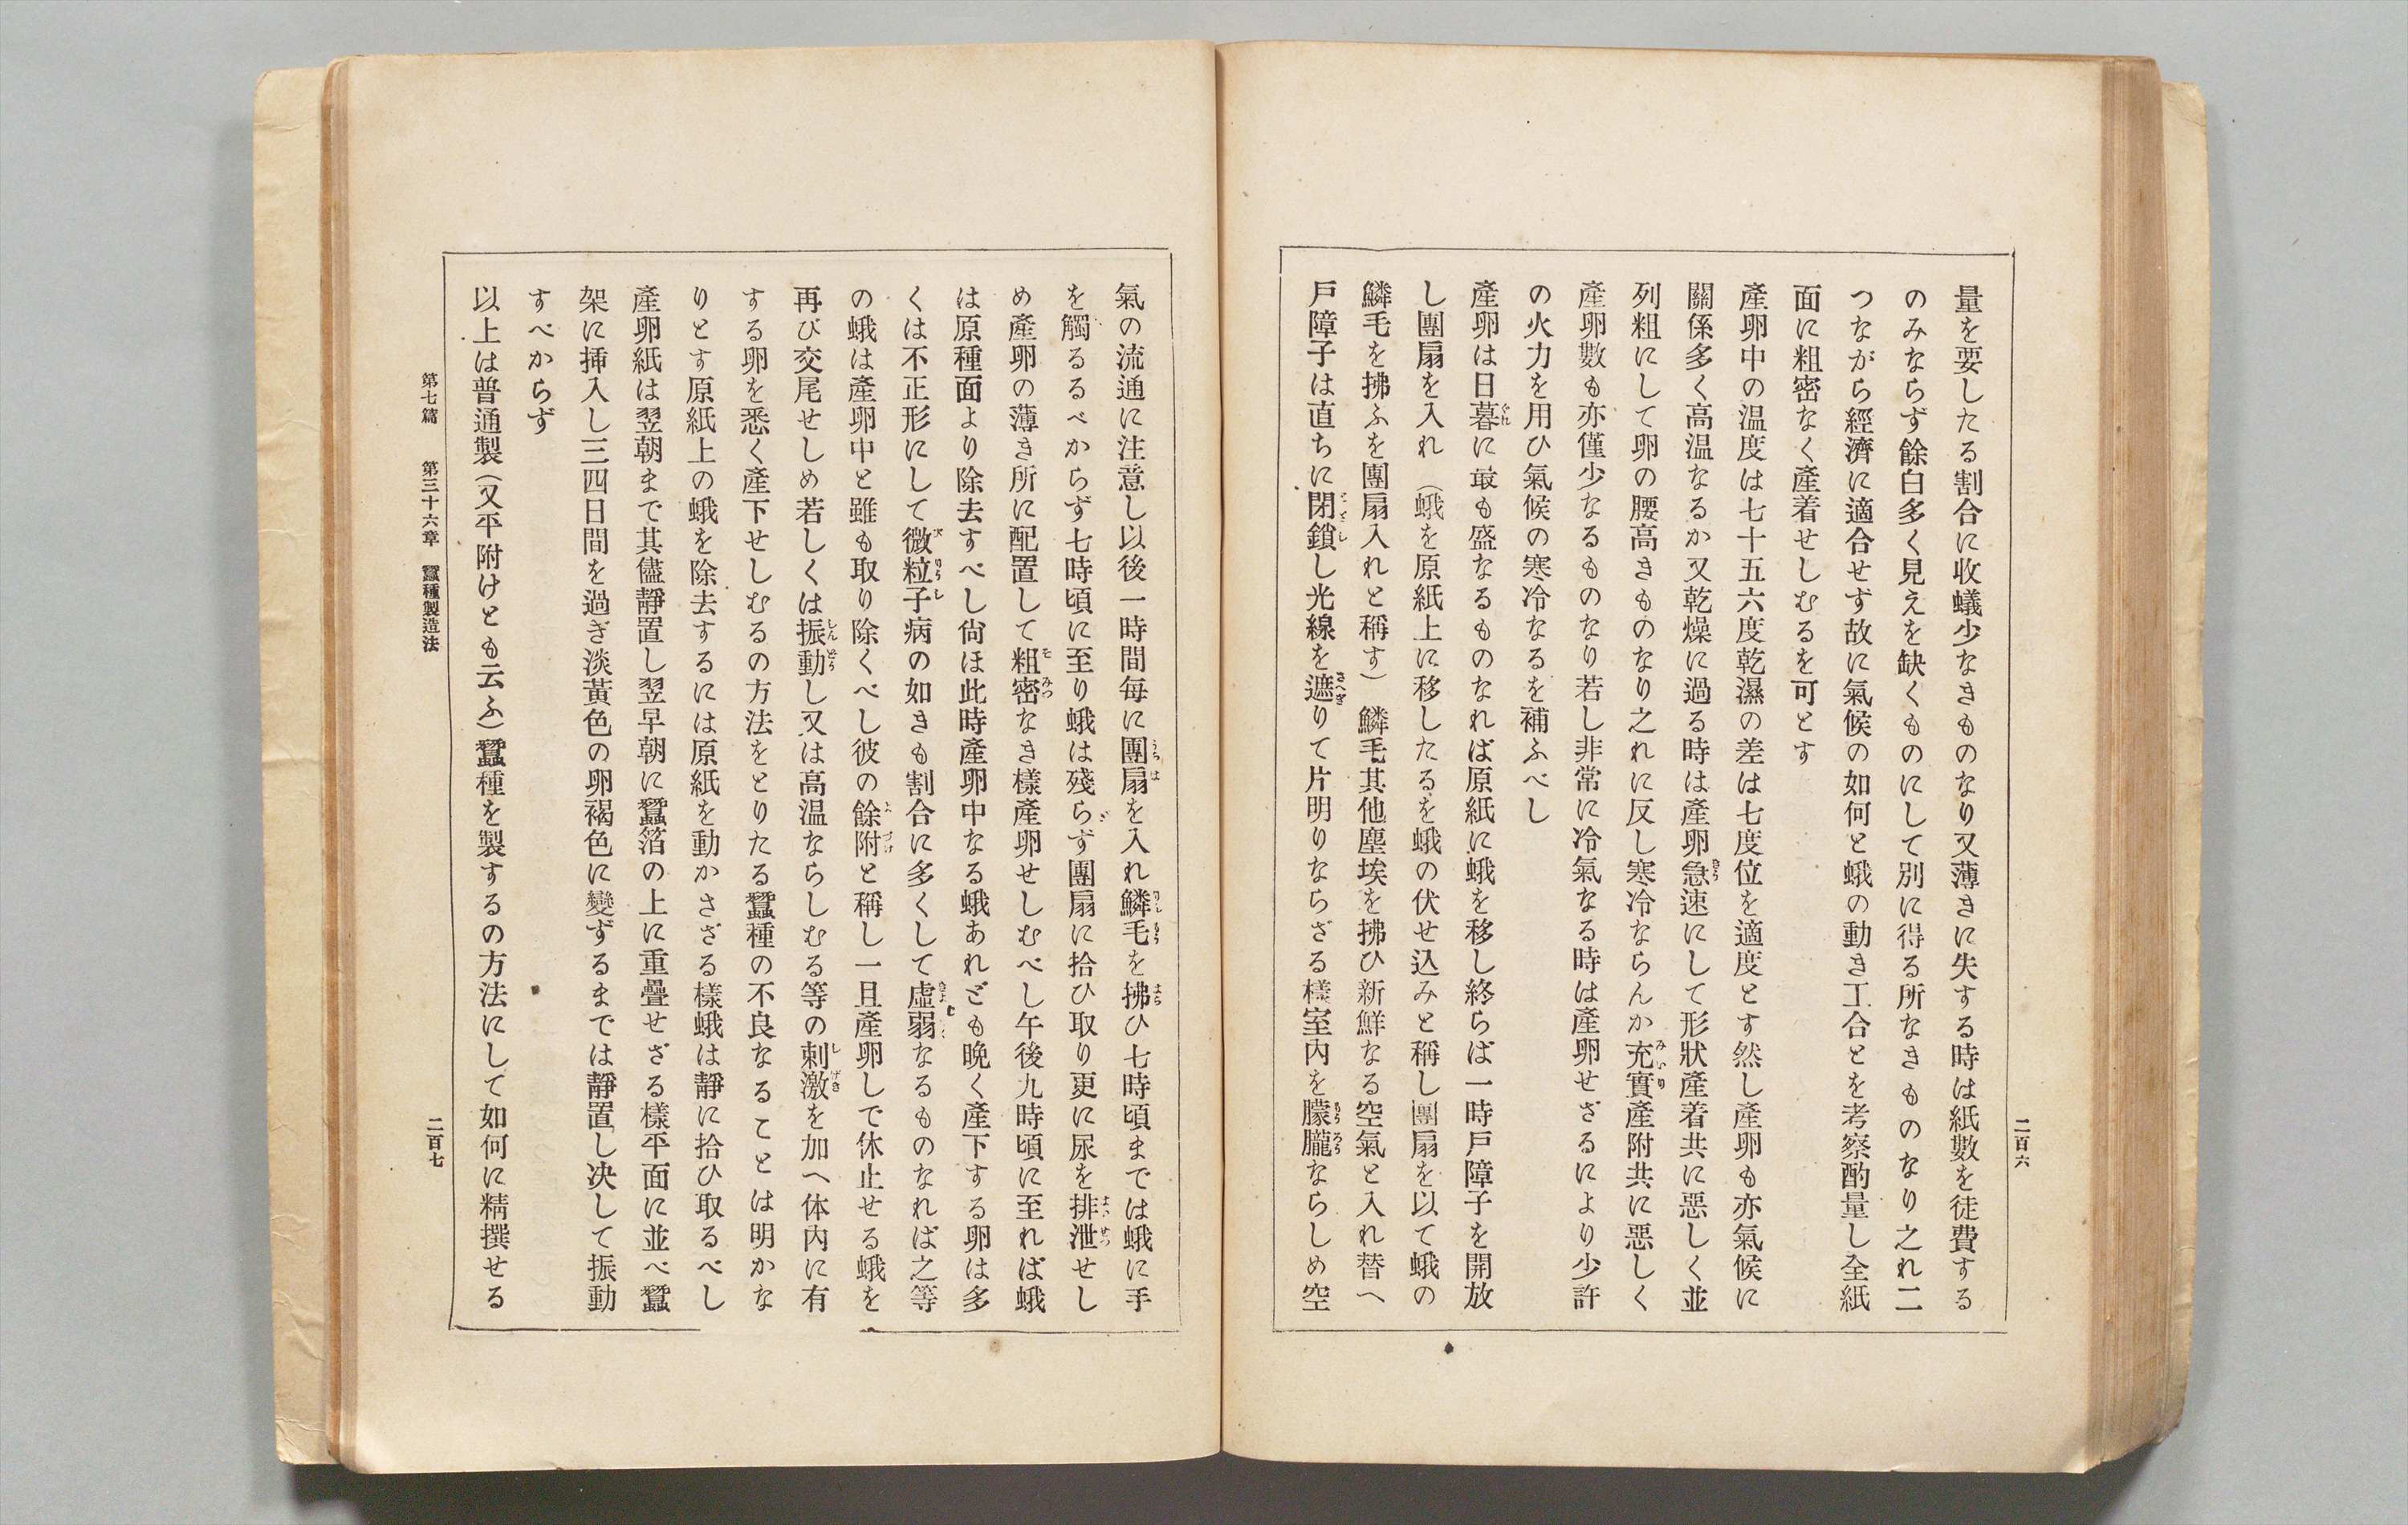 二百六
量を要したる割合に收蟻少なきものなり又薄きに失する時は紙數を徒費する
のみならず餘白多く見えを缺くものにして別に得る所なきものなり之れ二
つながら經濟に適合せず故に氣候の如何と蛾の動き工合とを考察酌量し全紙
面に粗密なく產着せしむるを可とす
產卵中の温度は七十五六度乾濕の差は七度位を適度とす然し產卵も亦氣候に
關係多く高温なるか又乾燥に過る時は產卵急速にして形狀產着共に惡しく並
列粗にして卵の腰高きものなり之れに反し寒冷ならんか充實產附共に惡しく
產卵數も亦僅少なるものなり若し非常に冷氣なる時は產卵せざるにより少許
の火力を用ひ氣候の寒冷なるを補ふべし
產卵は日暮に最も盛なるものなれば原紙に蛾を移し終らば一時戸障子を開放
し團扇を入れ（蛾を原紙上に移したるを蛾の伏せ込みと稱し團扇を以て蛾の
鱗毛を拂ふを團扇入れと稱す）鱗毛其他塵埃を拂ひ新鮮なる空氣と入れ替へ
戸障子は直ちに閉鎖し光線を遮りて片明りならざる樣室内を朦朧ならしめ空
氣の流通に注意し以後一時間每に團扇を入れ鱗毛を拂ひ七時頃までは蛾に手
を觸るるべからず七時頃に至り蛾は殘らず團扇に拾ひ取り更に尿を排泄せし
め產卵の薄き所に配置して粗密なき樣產卵せしむべし午後九時頃に至れば蛾
は原種面より除去すべし尙ほ此時產卵中なる蛾あれども晩く產下する卵は多
くは不正形にして微粒子病の如きも割合に多くして虛弱なるものなれば之等
の蛾は產卵中と雖も取り除くべし彼の餘附と稱し一旦產卵しで休止せる蛾を
再び交尾せしめ若しくは振動し又は高温ならしむる等の刺激を加へ体内に有
する卵を悉く產下せしむるの方法をとりたる蠶種の不良なることは明かな
りとす原紙上の蛾を除去するには原紙を動かさざる樣蛾は靜に拾ひ取るべし
產卵紙は翌朝まで其儘靜置し翌早朝に蠶箔の上に重疊せざる樣平面に並べ蠶
架に揷入し三四日間を過ぎ淡黃色の卵褐色に變ずるまでは靜置し決して振動
すべからず
以上は普通製（又平附けとも云ふ）蠶種を製するの方法にして如何に精撰せる
第七篇　第三十六章　蠶種製造法
二百七